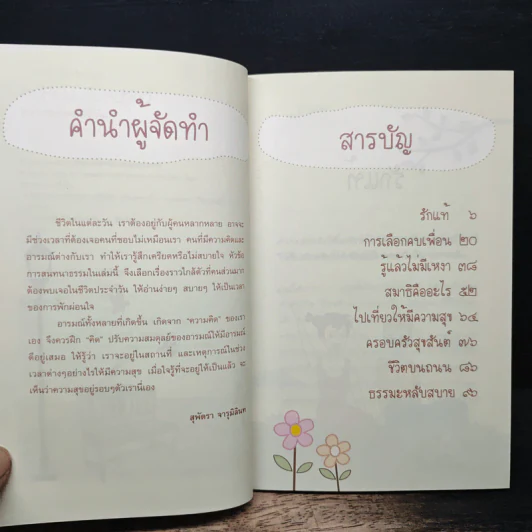 คำนำผู้จัดทำ
ชีวิตในแต่ละวัน เราต้องอยู่กับผู้คนหลากหลาย อาจจะ
มีช่วงเวลาที่ต้องเจอคนที่ชอบไม่เหมือนเรา คนที่มีความคิดและ
อารมณ์ต่างกับเรา ทำให้เรารู้สึกเครียดหรือไม่สบายใจ หัวข้อ
การสนทนาธรรมในเล่มนี้ จึงเลือกเรื่องราวใกล้ตัวที่คนส่วนมาก
ต้องพบเจอในชีวิตประจำวัน ให้อ่านง่ายๆ สบายๆ ให้เป็นเวลา
ของการพักผ่อนใจ
อารมณ์ทั้งหลายที่เกิดขึ้น เกิดจาก "ความคิด" ของเรา
เอง จึงควรฝึก "คิด" ปรับความสมดุลย์ของอารมณ์ให้มีอารมณ์
ดีอยู่เสมอ ให้รู้ว่า เราจะอยู่ในสถานที่ และเหตุการณ์ในช่วง
เวลาต่างๆอย่างไรให้มีความสุข เมื่อใจรู้ที่จะอยู่ให้เป็นแล้ว จะ
เห็นว่าความสุขอยู่รอบๆตัวเรานี่เอง
สุพัตรา จารุมิลินท
สารบัญ
รักแท้ ๖
การเลือกคบเพื่อน ๒๐
รู้แล้วไม่มีเหงา ๓๘
สมาธิคืออะไร ๕๒
ไปเที่ยวให้มีความสุข ๖๔
ครอบครัวสุขสันต์ ๗๖
ชีวิตบนถนน ๘๖
ธรรมะหลับสบาย ๙๖